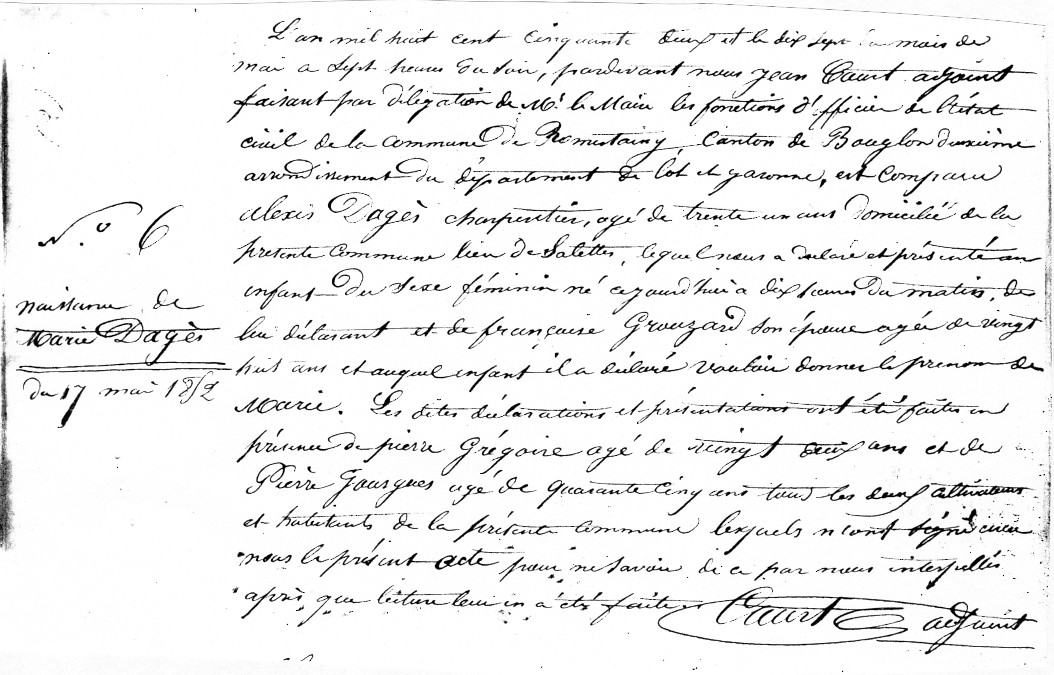 N.° 6
naissance de
Marie Dagès
du 17 mai 1852
L'an mil huit cent cinquante deux et le dix sept du mois de
mai a sept heures du soir, pardevant nous jean Caurt adjoint
faisant par délégation de Mr. le Maire les fonctions d'officier de l'état
civil de la commune de Romestaing, Canton de Bouglon deuxième
arrondissement du département de lot et garonne, est comparu
alexis Dagès charpentier, agé de trente un ans domicilié de la
présente commune lieu de Salettes, lequel nous a déclaré et présenté un
enfant du sexe féminin né cejourd'hui a dix heures du matin, de
lui déclarant et de françoise Grouzard son épouse agée de vingt
huit ans et auquel enfant il a déclaré vouloir donner le prenom de
Marie. Les dites déclarations et présentations ont été faites en
présence de pierre Grégoire agé de vingt deux ans et de
Pierre Gourgues agé de quarante cinq ans tous les deux cultivateurs
et habitants de la présente commune lesquels n'ont signé avec
nous le présent acte pour ne savoir de ce par nous interpellés
après que lecture leur en a été faite.
Caurt adjoint